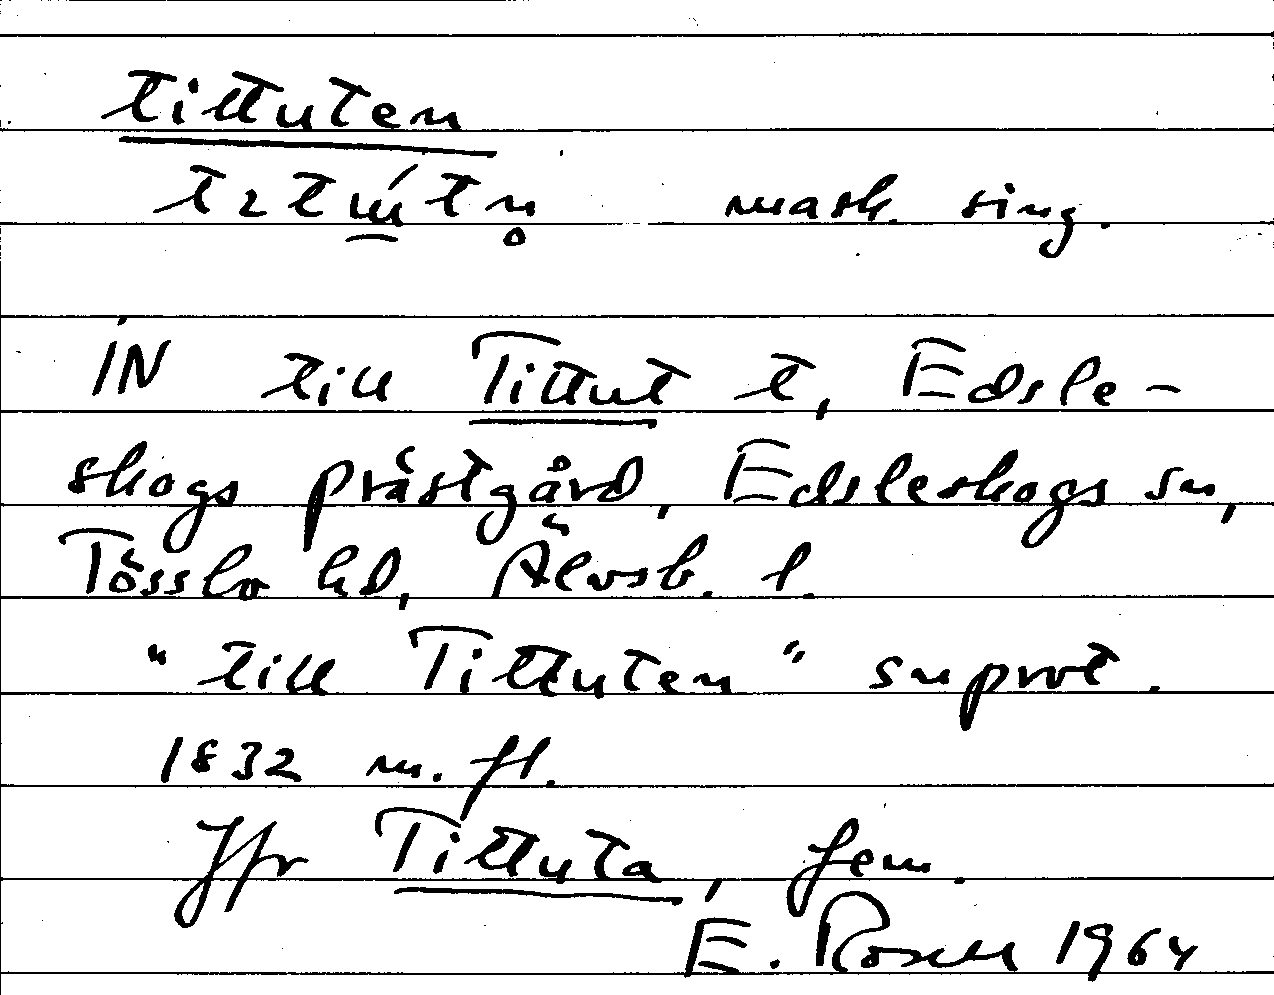 tittuten
tɩtú̲tn̥ mask. sing.
IN till Tittut t, Edsle-
skogs prästgård, Edsleskogs sn,
Tössbo hd, Älvsb. l.
"till Tittuten" snprot.
1832 m. fl.
Jfr Tittuta, fem.
E. Rosell 1964